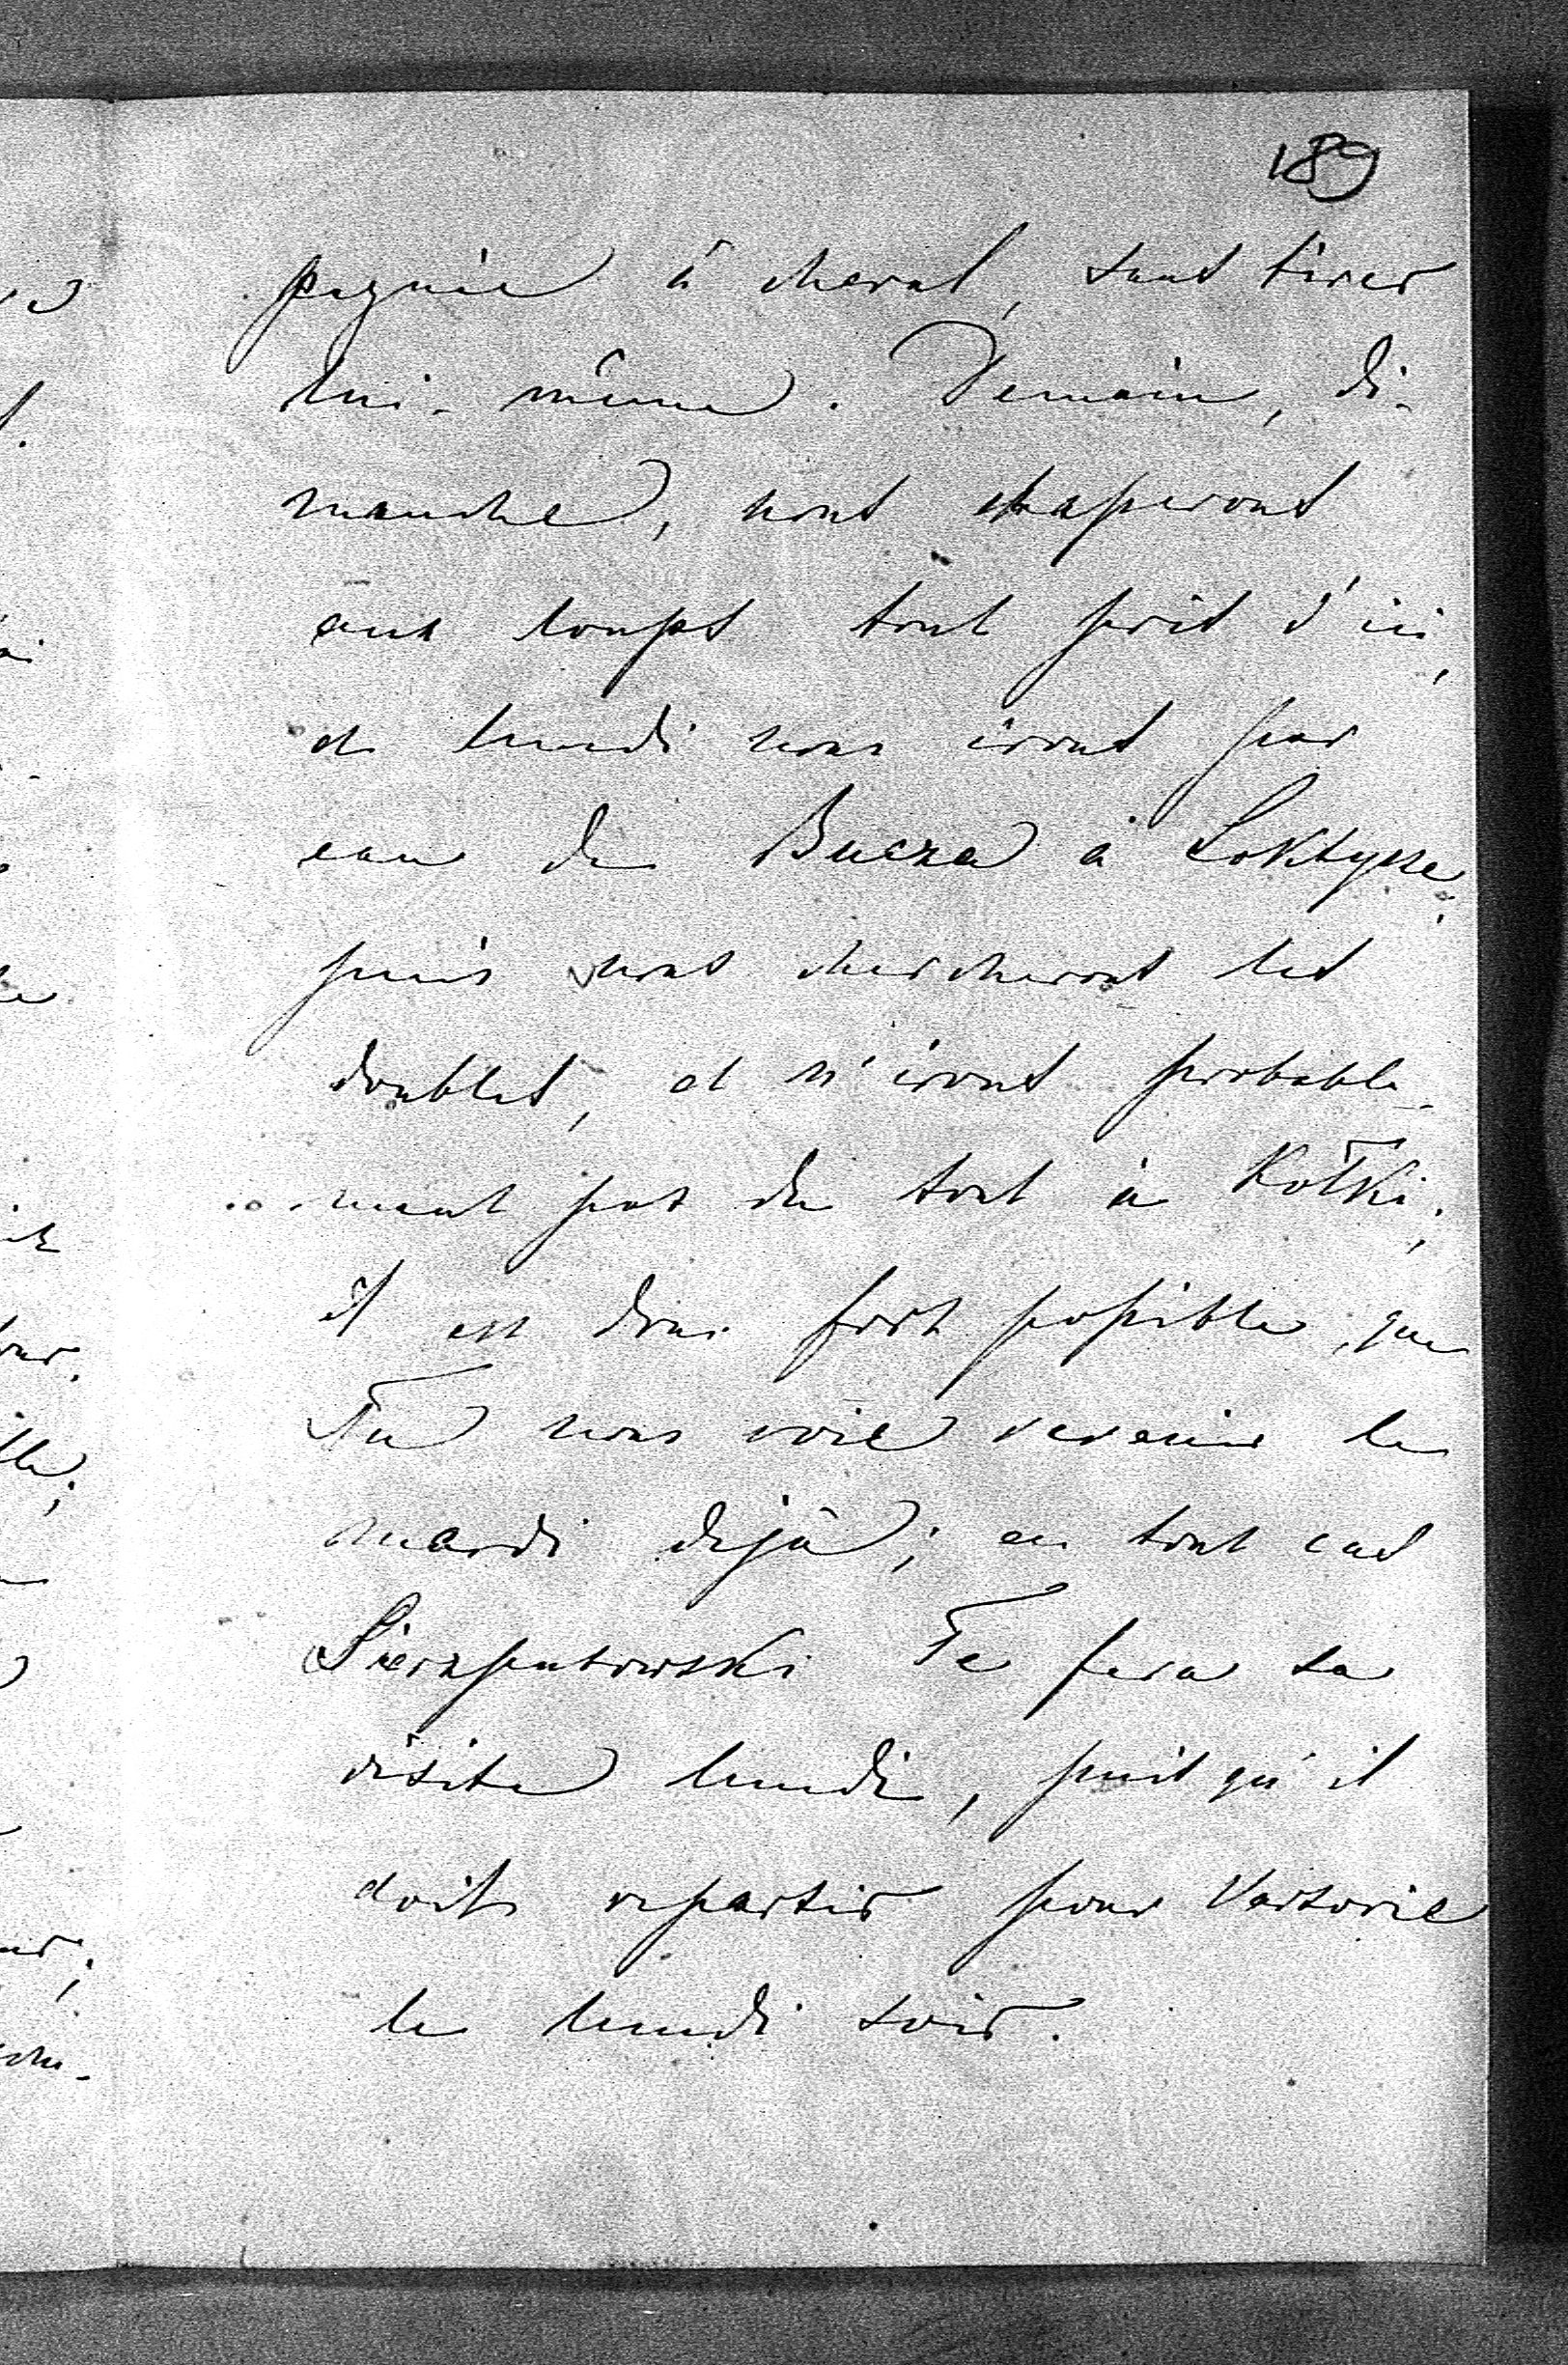 189
pagnie à cheval, sans tirer
lui-même. Demain, di-
manche, nous chasserons
aux loups tout près d'ici,
et lundi nous irons par
eau de Bucza à Loktysze,
puis nous chercherons les
doubles, et n'irons probable-
ment pas du tout à Kołki;
il est donc fort possible, que
Tu nous voie revenir le
mardi déjà; en tout cas
Sierzputowski Te fera sa
visite lundi, puis qu'il
doit repartir pour
le lundi soir.